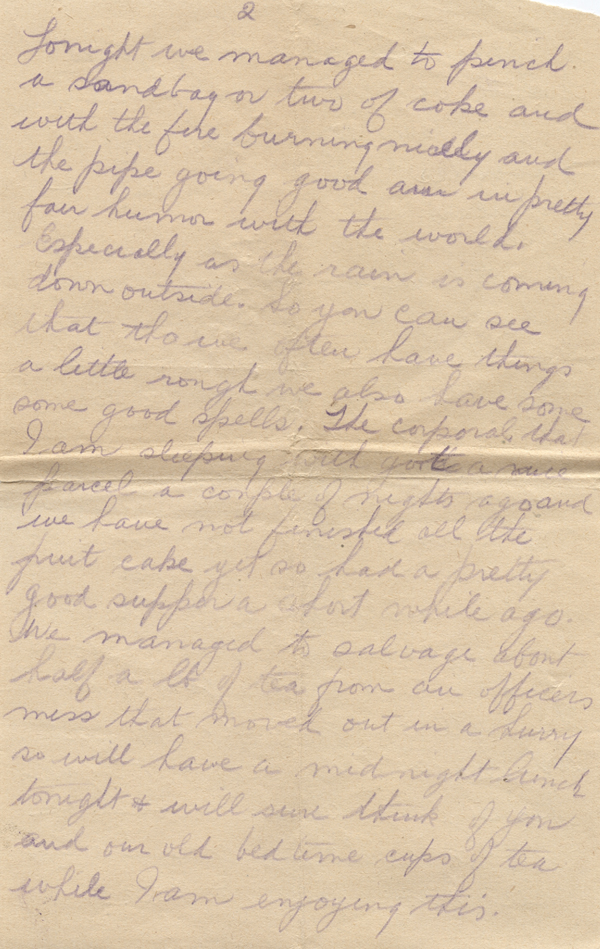 2
Tonight we managed to pinch
a sandbag or two of coke and
with the fire burning nicely and
the pipe going good am in pretty
fair humor with the world.
Especially as the rain is coming
down outside. So you can see
that tho we often have things
a little rough we also have some
some good spells. The corporal that
I am sleeping with got a nice
parcel a couple of nights ago and
we have not finished all the
fruit cake yet so had a pretty
good supper a short while ago.
We managed to salvage about
half a lb of tea from an officers
mess that moved out in a hurry
so will have a midnight lunch
tonight & will sure think of you
and our old bedtime cups of tea
while I am enjoying this.